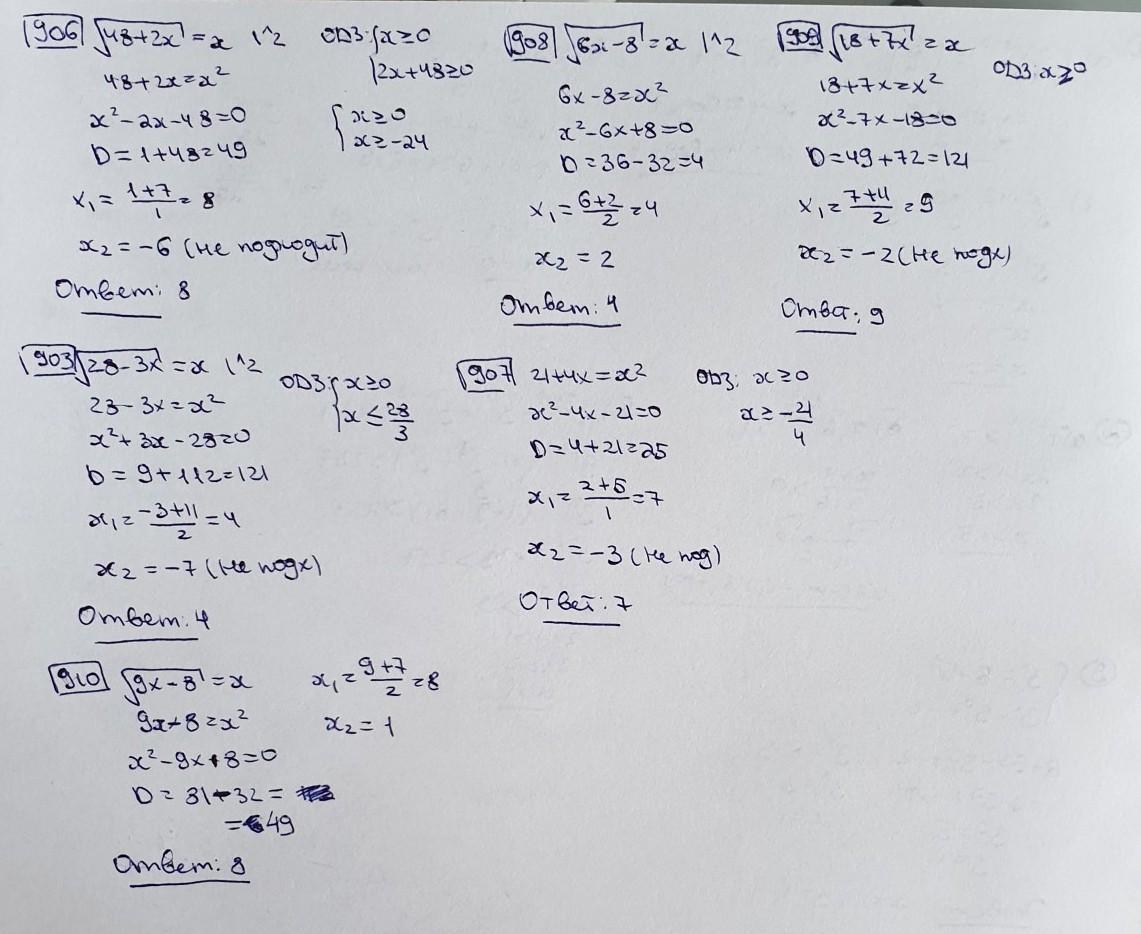 906 √48+2x = x |^2 ОДЗ: { x≥0
2x+48≥0
48+2x=x²
x²-2x-48=0
{ x≥0
x≥-24
D=1+48=49
x₁= (1+7)/1 = 8
x₂=-6 (не подходит)
Ответ: 8
908 √6x-8 = x |^2
6x-8=x²
x²-6x+8=0
D=36-32=4
x₁= (6+2)/2 = 4
x₂ = 2
Ответ: 4
909 √18+7x = x
ОДЗ: x≥0
18+7x=x²
x²-7x-18=0
D=49+72=121
x₁= (7+11)/2 = 9
x₂=-2 (не подх)
Отва: 9
903 √28-3x = x |^2
ОДЗ: { x≥0
x ≤ 28/3
28-3x=x²
x²+3x-28=0
D=9+112=121
x₁= (-3+11)/2 = 4
x₂=-7 (не подх)
Ответ: 4
907 21+4x=x² ОДЗ: x≥0
x≥ -21/4
x²-4x-21=0
D=4+21=25
x₁= (2+5)/1 = 7
x₂=-3 (не под)
Ответ: 7
910 √9x-8 = x
9x-8=x²
x²-9x+8=0
D=81-32=
=49
x₁= (9+7)/2 = 8
x₂=1
Ответ: 8